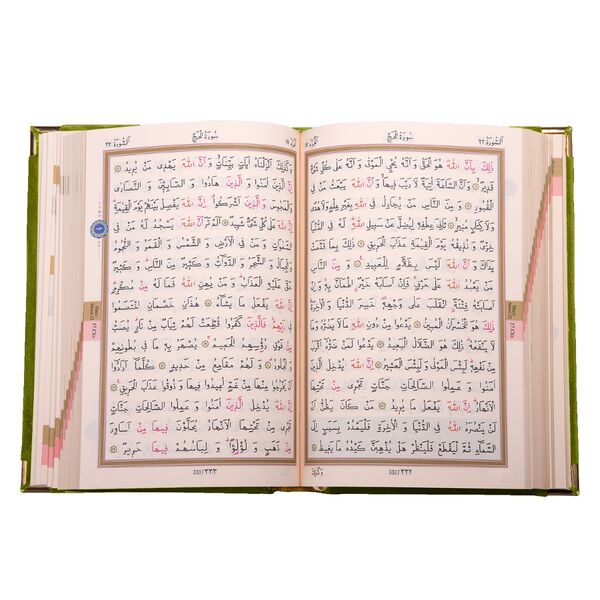 اَلسُّورَةُ ٢٢
سُورَةُ الْحَجِّ
ذٰلِكَ بِاَنَّ اللّٰهَ هُوَ الْحَقُّ وَ اَنَّهُ يُحْيِ الْمَوْتٰى وَ اَنَّهُ عَلٰى كُلِّ شَىْءٍ
قَدِيرٌ ۞ وَ اَنَّ السَّاعَةَ اٰتِيَةٌ لَا رَيْبَ فِيهَا وَ اَنَّ اللّٰهَ يَبْعَثُ مَنْ فِى
الْقُبُورِ ۞ وَ مِنَ النَّاسِ مَنْ يُجَادِلُ فِى اللّٰهِ بِغَيْرِ عِلْمٍ وَ لَا هُدًى
وَ لَا كِتَابٍ مُنِيرٍ ۞ ثَانِىَ عِطْفِهِ لِيُضِلَّ عَنْ سَبِيلِ اللّٰهِ لَهُ فِى الدُّنْيَا
خِزْىٌ وَ نُذِيقُهُ يَوْمَ الْقِيٰمَةِ عَذَابَ الْحَرِيقِ ۞ ذٰلِكَ بِمَا قَدَّمَتْ
يَدَاكَ وَ اَنَّ اللّٰهَ لَيْسَ بِظَلَّامٍ لِلْعَبِيدِ ۞ وَ مِنَ النَّاسِ مَنْ يَعْبُدُ
اللّٰهَ عَلٰى حَرْفٍ فَاِنْ اَصَابَهُ خَيْرٌ اطْمَاَنَّ بِهِ وَ اِنْ
اَصَابَتْهُ فِتْنَةٌ انْقَلَبَ عَلٰى وَجْهِهِ خَسِرَ الدُّنْيَا وَ الْاٰخِرَةَ
ذٰلِكَ هُوَ الْخُسْرَانُ الْمُبِينُ ۞ يَدْعُوا مِنْ دُونِ اللّٰهِ مَا لَا يَضُرُّهُ وَ مَا
لَا يَنْفَعُهُ ذٰلِكَ هُوَ الضَّلَالُ الْبَعِيدُ ۞ يَدْعُوا لَمَنْ ضَرُّهُ اَقْرَبُ
مِنْ نَفْعِهِ لَبِئْسَ الْمَوْلٰى وَ لَبِئْسَ الْعَشِيرُ ۞ اِنَّ اللّٰهَ يُدْخِلُ
الَّذِينَ اٰمَنُوا وَ عَمِلُوا الصَّالِحَاتِ جَنَّاتٍ تَجْرِى مِنْ تَحْتِهَا
الْاَنْهَارُ اِنَّ اللّٰهَ يَفْعَلُ مَا يُرِيدُ ۞ مَنْ كَانَ يَظُنُّ اَنْ
لَنْ يَنْصُرَهُ اللّٰهُ فِى الدُّنْيَا وَ الْاٰخِرَةِ فَلْيَمْدُدْ بِسَبَبٍ اِلَى
السَّمَاءِ ثُمَّ لْيَقْطَعْ فَلْيَنْظُرْ هَلْ يُذْهِبَنَّ كَيْدُهُ مَا يَغِيظُ ۞
332/٣٣٢
وَكَذٰلِكَ
سُورَةُ الْحَجِّ
اَلسُّورَةُ ٢٢
وَ كَذٰلِكَ اَنْزَلْنَاهُ اٰيَاتٍ بَيِّنَاتٍ وَ اَنَّ اللّٰهَ يَهْدِى مَنْ يُرِيدُ ۞
اِنَّ الَّذِينَ اٰمَنُوا وَ الَّذِينَ هَادُوا وَ الصَّابِئِينَ وَ النَّصَارٰى
وَ الْمَجُوسَ وَ الَّذِينَ اَشْرَكُوا اِنَّ اللّٰهَ يَفْصِلُ بَيْنَهُمْ يَوْمَ الْقِيٰمَةِ
اِنَّ اللّٰهَ عَلٰى كُلِّ شَىْءٍ شَهِيدٌ ۞ اَلَمْ تَرَ اَنَّ اللّٰهَ يَسْجُدُ لَهُ مَنْ فِى
السَّمٰوَاتِ وَ مَنْ فِى الْاَرْضِ وَ الشَّمْسُ وَ الْقَمَرُ وَ النُّجُومُ
وَ الْجِبَالُ وَ الشَّجَرُ وَ الدَّوَابُّ وَ كَثِيرٌ مِنَ النَّاسِ وَ كَثِيرٌ
حَقَّ عَلَيْهِ الْعَذَابُ وَ مَنْ يُهِنِ اللّٰهُ فَمَا لَهُ مِنْ مُكْرِمٍ
اِنَّ اللّٰهَ يَفْعَلُ مَا يَشَاءُ ۞ هٰذَانِ خَصْمَانِ اخْتَصَمُوا
فِى رَبِّهِمْ فَالَّذِينَ كَفَرُوا قُطِّعَتْ لَهُمْ ثِيَابٌ مِنْ نَارٍ يُصَبُّ
مِنْ فَوْقِ رُؤُسِهِمُ الْحَمِيمُ ۞ يُصْهَرُ بِهِ مَا فِى بُطُونِهِمْ
وَ الْجُلُودُ ۞ وَ لَهُمْ مَقَامِعُ مِنْ حَدِيدٍ ۞ كُلَّمَا اَرَادُوا
اَنْ يَخْرُجُوا مِنْهَا مِنْ غَمٍّ اُعِيدُوا فِيهَا وَ ذُوقُوا عَذَابَ الْحَرِيقِ ۞
اِنَّ اللّٰهَ يُدْخِلُ الَّذِينَ اٰمَنُوا وَ عَمِلُوا الصَّالِحَاتِ جَنَّاتٍ
تَجْرِى مِنْ تَحْتِهَا الْاَنْهَارُ يُحَلَّوْنَ فِيهَا مِنْ اَسَاوِرَ
مِنْ ذَهَبٍ وَ لُؤْلُؤًا وَ لِبَاسُهُمْ فِيهَا حَرِيرٌ ۞
333/٣٣٣
17.Cüz